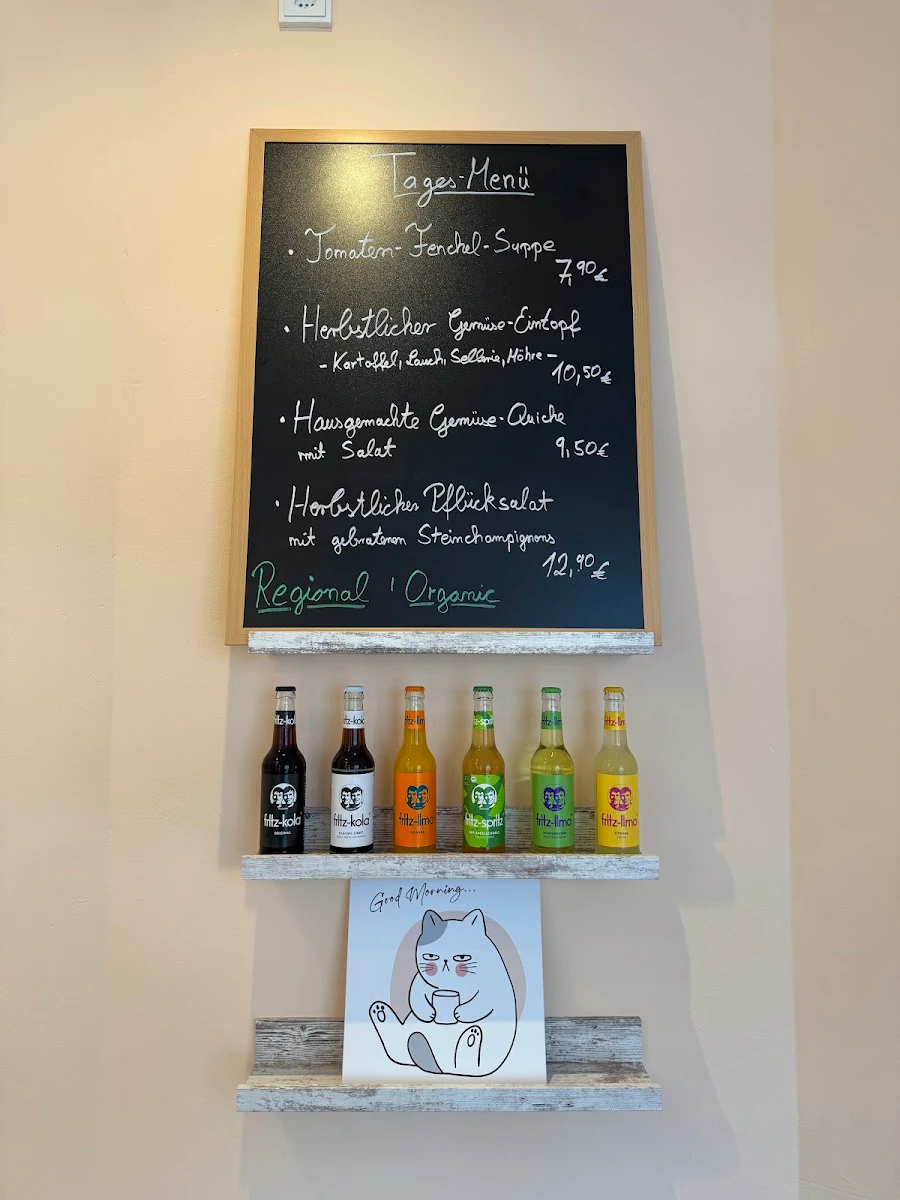 Tages-Menü
• Tomaten-Fenchel-Suppe
7,90€
• Herbstlicher Gemüse-Eintopf
- Kartoffel, Lauch, Sellerie, Möhre -
10,50€
• Hausgemachte Gemüse-Quiche
mit Salat 9,50€
• Herbstlicher Pflücksalat
mit gebratenen Steinchampignons
12,90€
Regional ' Organic
fritz-kola fritz-kola fritz-limo fritz-spritz fritz-limo fritz-limo
Good Morning...